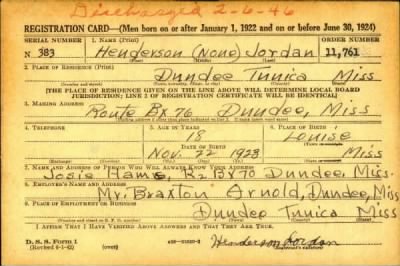 Discharged 2-6-46
REGISTRATION CARD—(Men born on or after January 1, 1922 and on or before June 30, 1924)
SERIAL NUMBER 1. NAME (Print) ORDER NUMBER
N 383 Henderson (None) Jordan 11,761
(First) (Middle) (Last)
2. PLACE OF RESIDENCE (Print)
Dundee Tunica Miss
[THE PLACE OF RESIDENCE GIVEN ON THE LINE ABOVE WILL DETERMINE LOCAL BOARD
JURISDICTION; LINE 2 OF REGISTRATION CERTIFICATE WILL BE IDENTICAL]
3. MAILING ADDRESS
Route Bx 70 Dundee, Miss
[Mailing address if other than place indicated on line 2. If same insert word same]
4. TELEPHONE 5. AGE IN YEARS 6. PLACE OF BIRTH
18 Louise
DATE OF BIRTH
Nov. 22 1923 Miss
(Exchange) (Number) (Mo.) (Day) (Yr.) (State or country)
7. NAME AND ADDRESS OF PERSON WHO WILL ALWAYS KNOW YOUR ADDRESS
Josie Hams, R2 Bx 70 Dundee, Miss.
8. EMPLOYER'S NAME AND ADDRESS
Mr. Braxton Arnold, Dundee, Miss
9. PLACE OF EMPLOYMENT OR BUSINESS
Dundee Tunica Miss
I AFFIRM THAT I HAVE VERIFIED ABOVE ANSWERS AND THAT THEY ARE TRUE.
D. S. S. Form 1 (over) Henderson Jordan